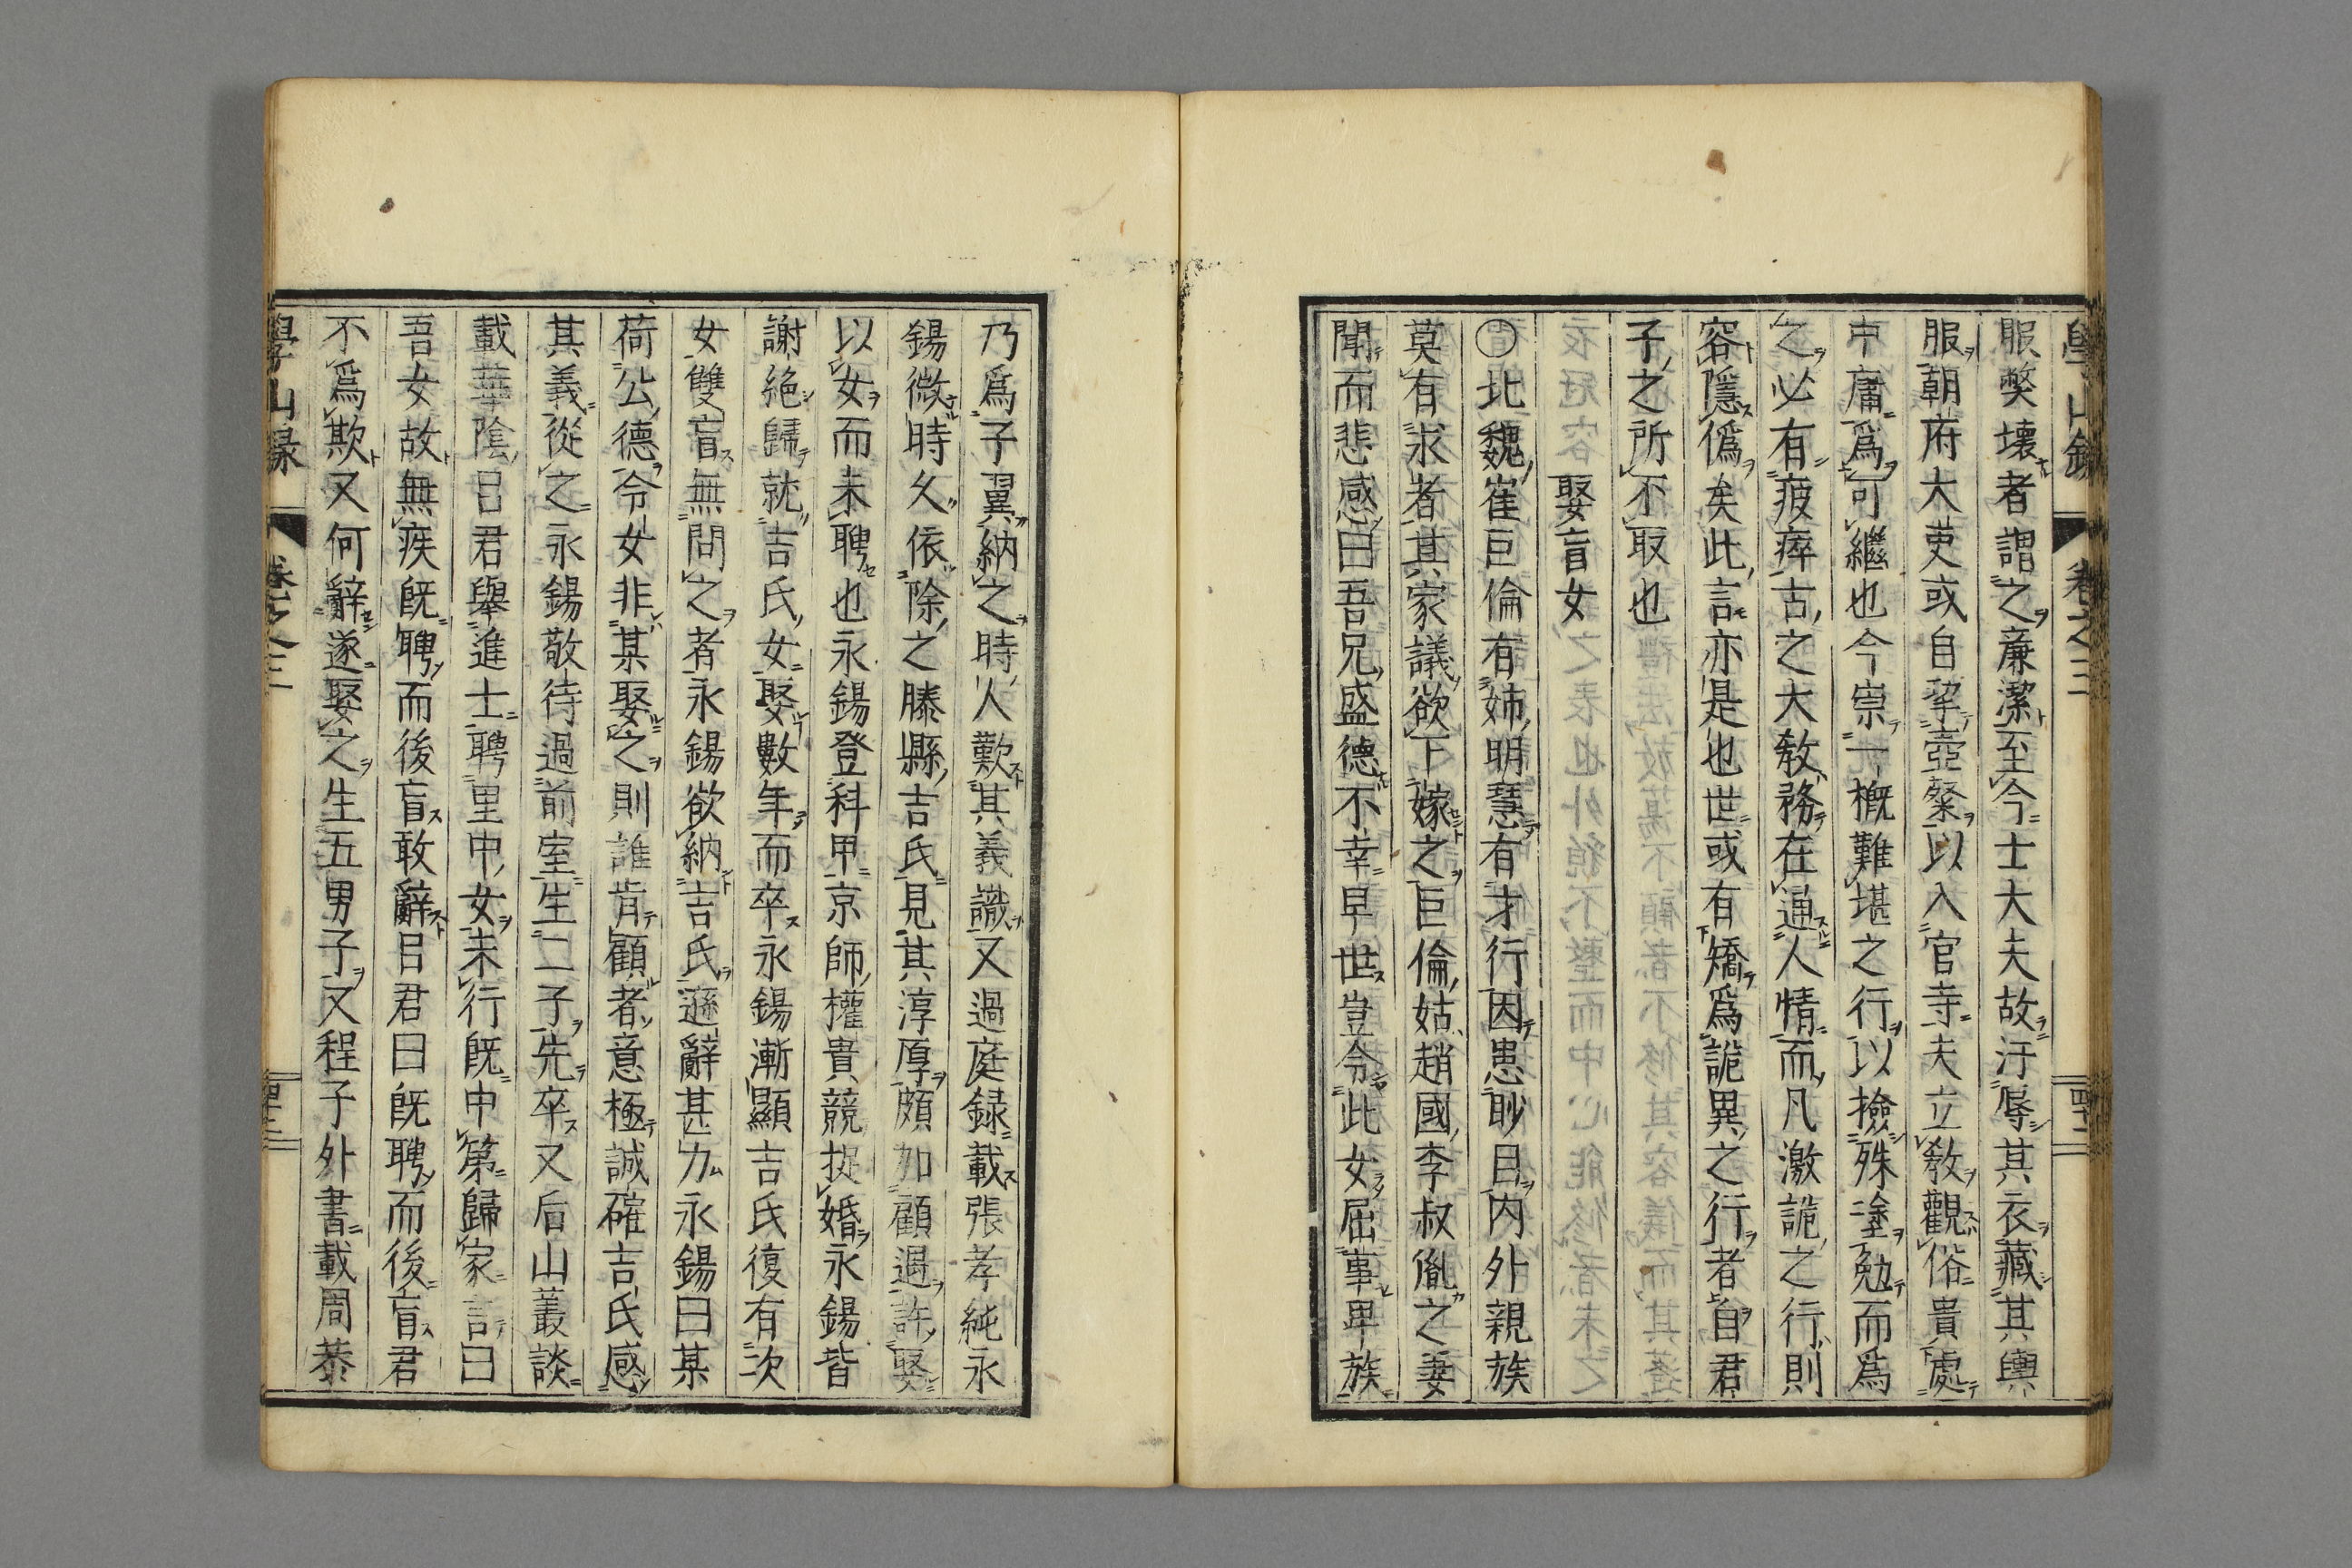 學山錄 卷之三
服獘壞者謂之廉潔至今士大夫故汙辱其衣藏其輿
服朝府大吏或自挈壺餐以入官寺夫立敎觀俗貴處
中庸爲可繼也今崇一槪難堪之行以撿殊塗勉而爲
之必有疲瘁古之大敎務在通人情而凡激詭之行則
容隱僞矣此言亦是也世或有矯爲詭異之行者自君
子之所不取也
娶盲女
〇北魏崔巨倫有姉明慧有才行因患眇目內外親族
莫有求者其家議欲下嫁之巨倫姑趙國李叔胤之妻
聞而悲感曰吾兄盛德不幸早世豈令此女屈事卑族
乃爲子翼納之時人歎其義識又過庭録載張孝純永
錫微時久依除之滕縣吉氏見其淳厚頗加顧遇許娶
以女而未聘也永錫登科甲京師權貴競捉婚永錫皆
謝絶歸就吉氏女娶數年而卒永錫漸顯吉氏復有次
女雙盲無問之者永錫欲納吉氏遜辭甚力永錫曰某
荷公德令女非某娶之則誰肯顧者意極誠確吉氏感
其義從之永錫敬待過前室生二子先卒又后山叢談
載華陰呂君舉進士聘里中女未行旣中第歸家言曰
吾女故無疾旣聘而後盲敢辭呂君曰旣聘而後盲君
不爲欺又何辭遂娶之生五男子又程子外書載周恭
學山錄 卷之三